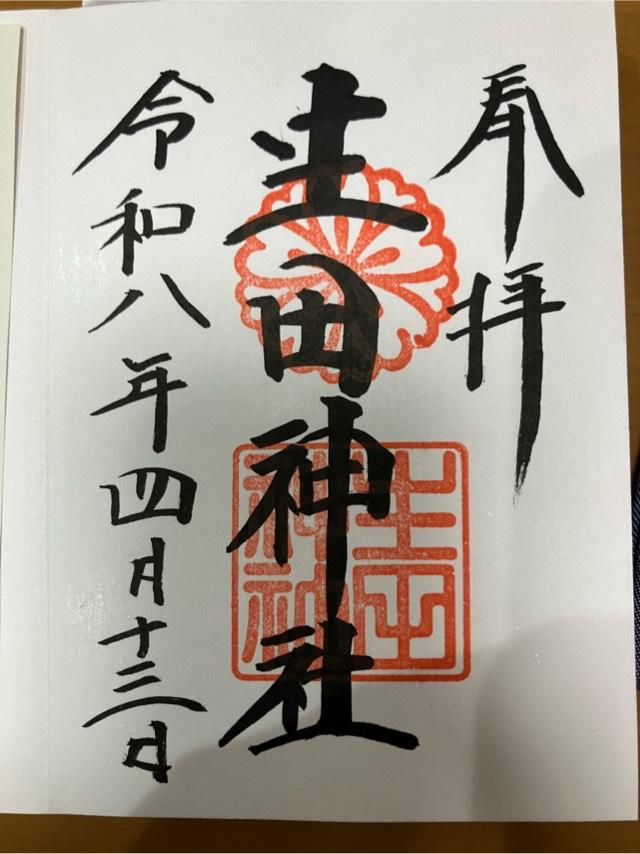 奉拝
生田神社
生田神社
令和八年四月十三日